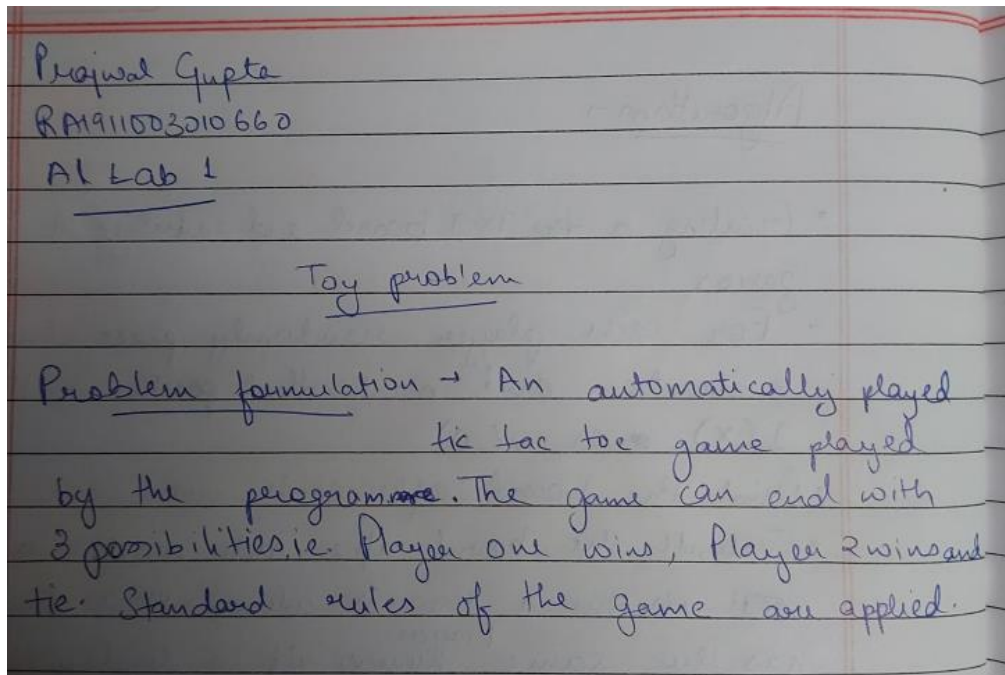 Prajwal Gupta
RA1911003010660
AI Lab 1
Toy problem
Problem formulation → An automatically played
tic tac toe game played
by the program. The game can end with
3 possibilities, i.e. Player one wins, Player 2 wins and
tie. Standard rules of the game are applied.